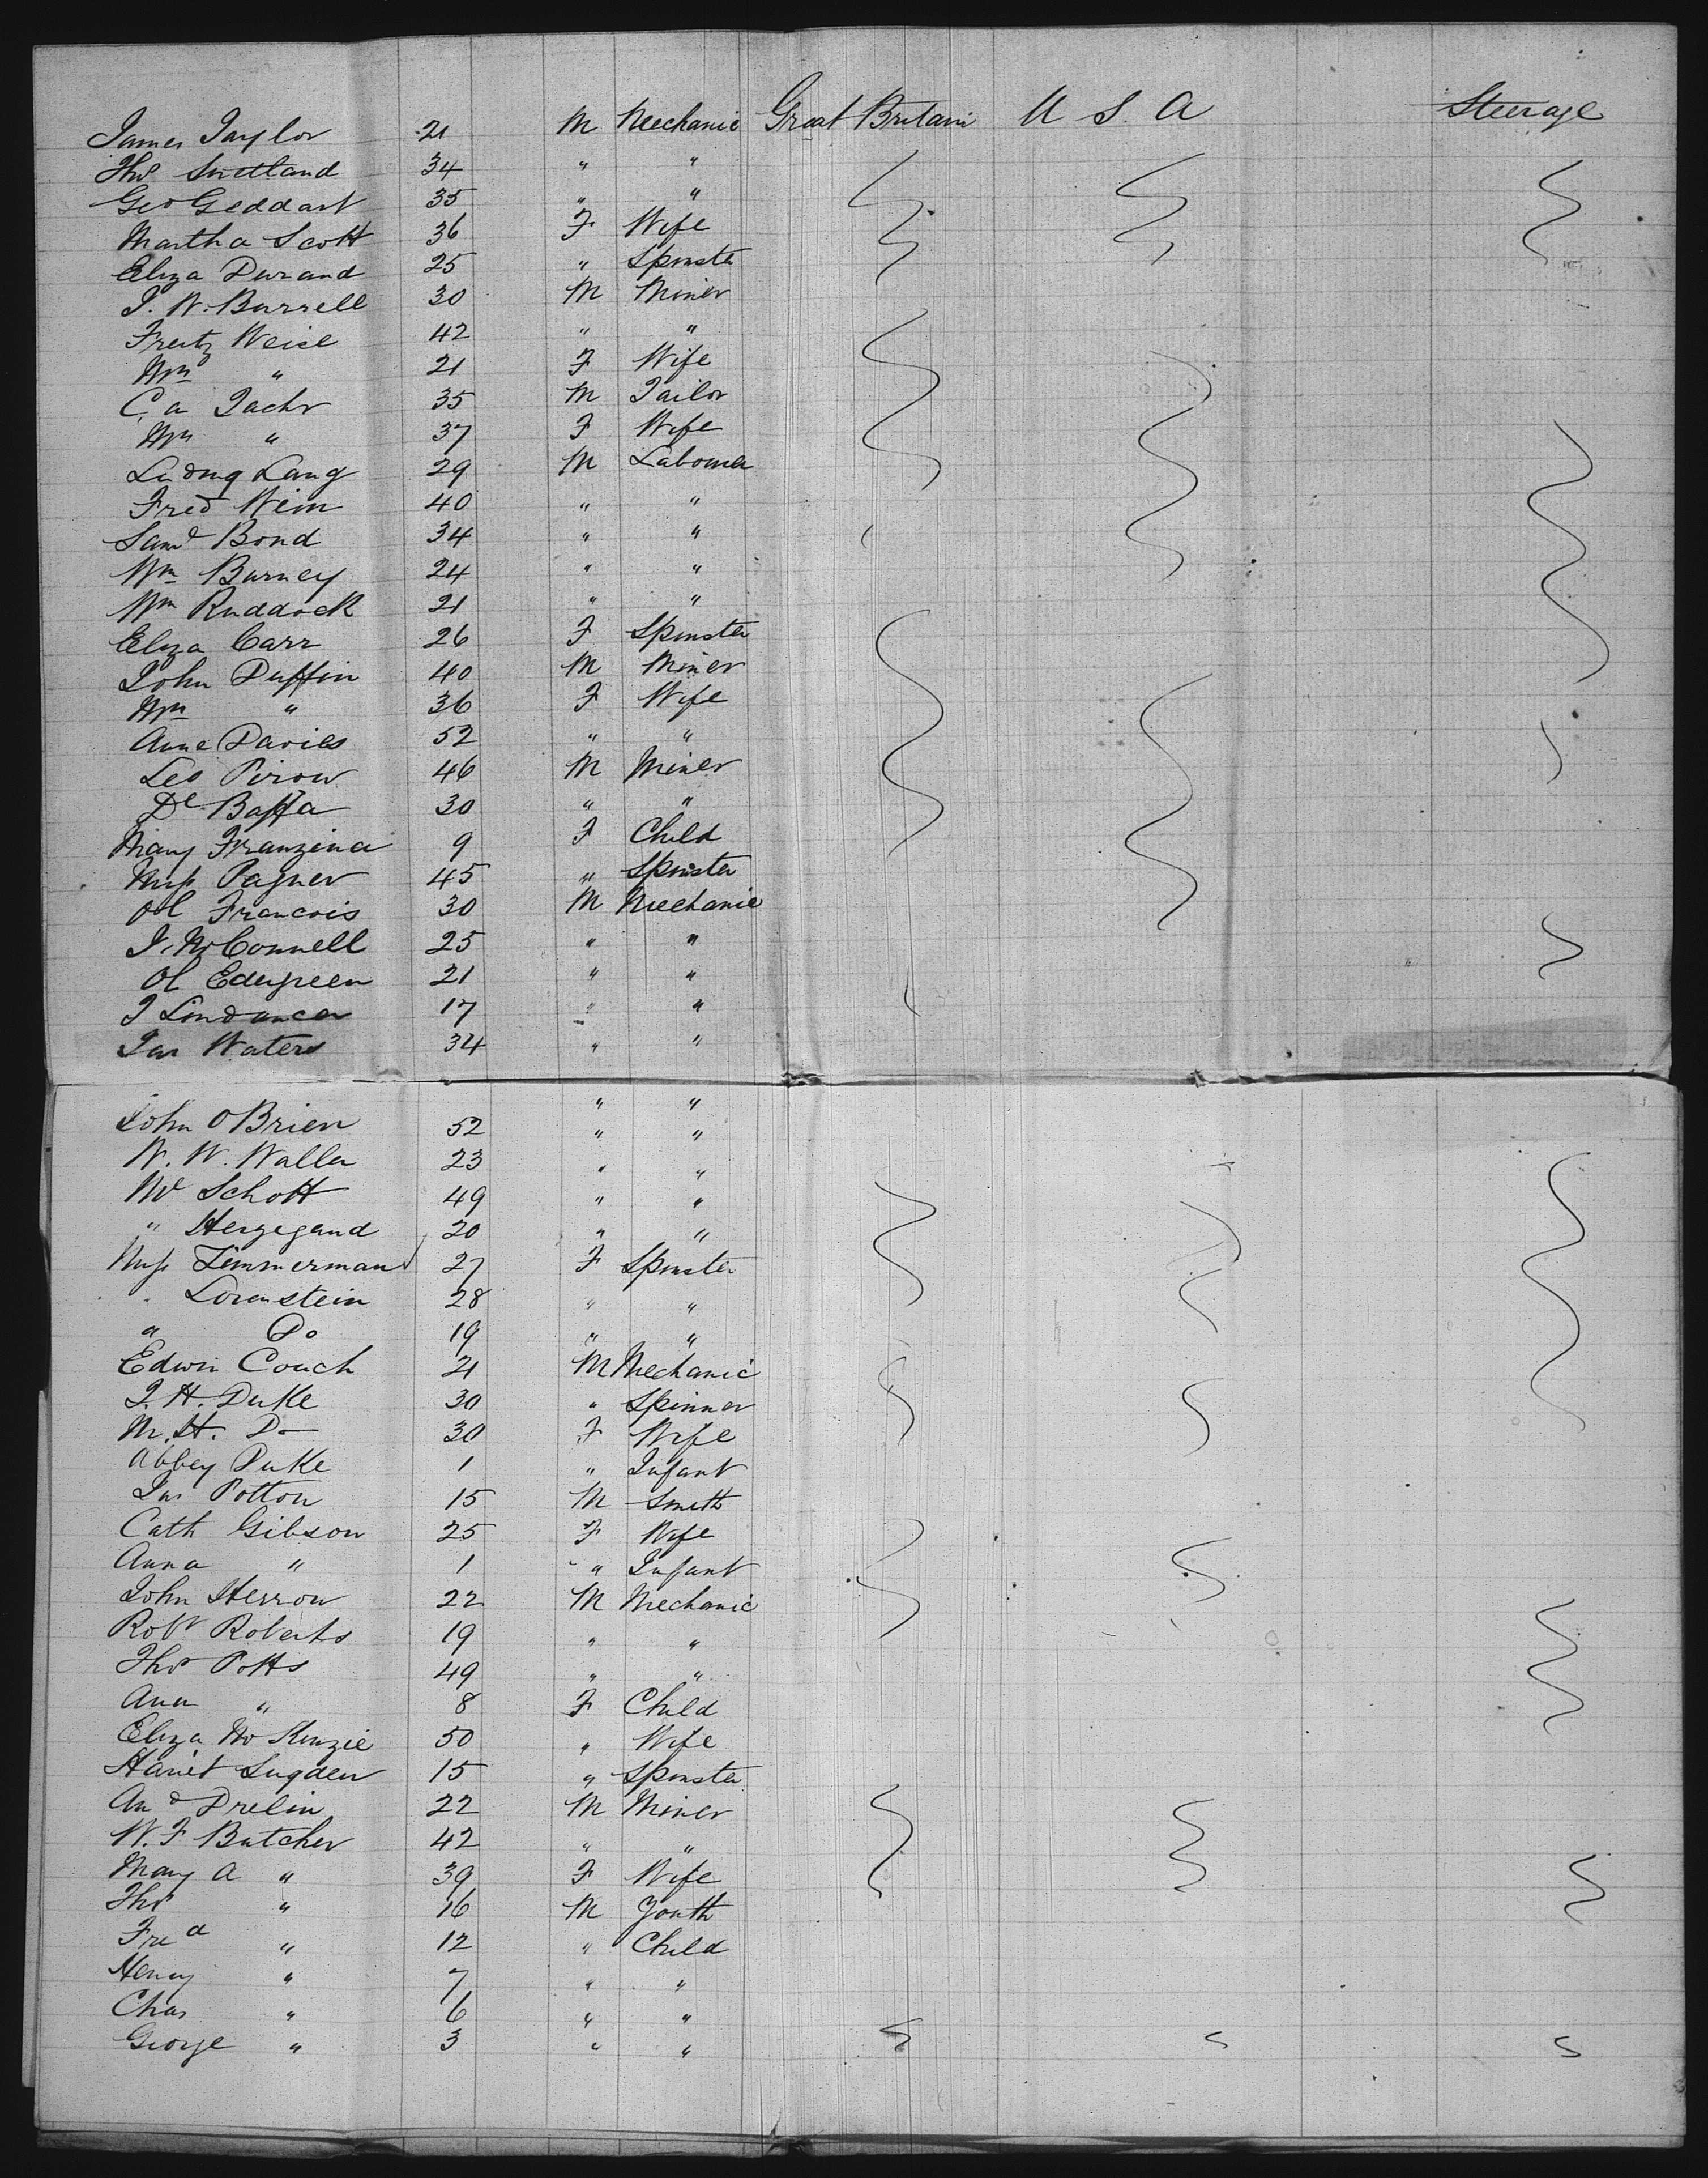 James Taylor 21 M Mechanic Great Britain U S A Steerage
Thos 34 " "
Geo Geddart 35 " "
Martha Scott 36 F Wife
Eliza Durand 25 " Spinster
J. W. Burrell 30 M Miner
Freitz Weise 42 " "
Mrs " 21 F Wife
C. a Jachr 35 M Tailor
Mrs " 37 F Wife
Ludwg Lang 29 M Labourer
Fred Wein 40 " "
Saml Bond 34 " "
Wm Burney 24 " "
Wm Ruddock 21 " "
Eliza Carr 26 F Spinster
John Duffin 40 M Miner
Mrs " 36 F Wife
Anne Davies 52 " "
Leo Pirow 46 M Miner
De Baffa 30 " "
Mary Franzina 9 F Child
Miss Pagner 45 " Spinster
Ol Francois 30 M Mechanic
J. McConnell 25 " "
Ol Edegreen 21 " "
J Lindancer 17 " "
Jas Waters 34 " "
" "
John OBrien 52 " "
W. W. Waller 23 " "
Mr Schott 49 " "
" Hergegand 20 " "
Miss Zimmerman 27 F Spinster
" Lorenstein 28 " "
" Do 19 " "
Edwin Couch 21 M Mechanic
J. H. Duke 30 " Spinner
M. H. Do 30 F Wife
Abbey Duke 1 " Infant
Jas Potton 15 M Smith
Cath Gibson 25 F Wife
Anna " 1 " Infant
John Herron 22 M Mechanic
Robt Roberts 19 " "
Thos Potts 49 " "
Ann " 8 F Child
Eliza McKenzie 50 " Wife
Hariet Sugden 15 " Spinster
And Drelin 22 M Miner
W. F Butcher 42 " "
Mary A " 39 F Wife
Thos " 16 M Youth
Fred " 12 " Child
Henry " 7 " "
Chas " 6 " "
George " 3 " "